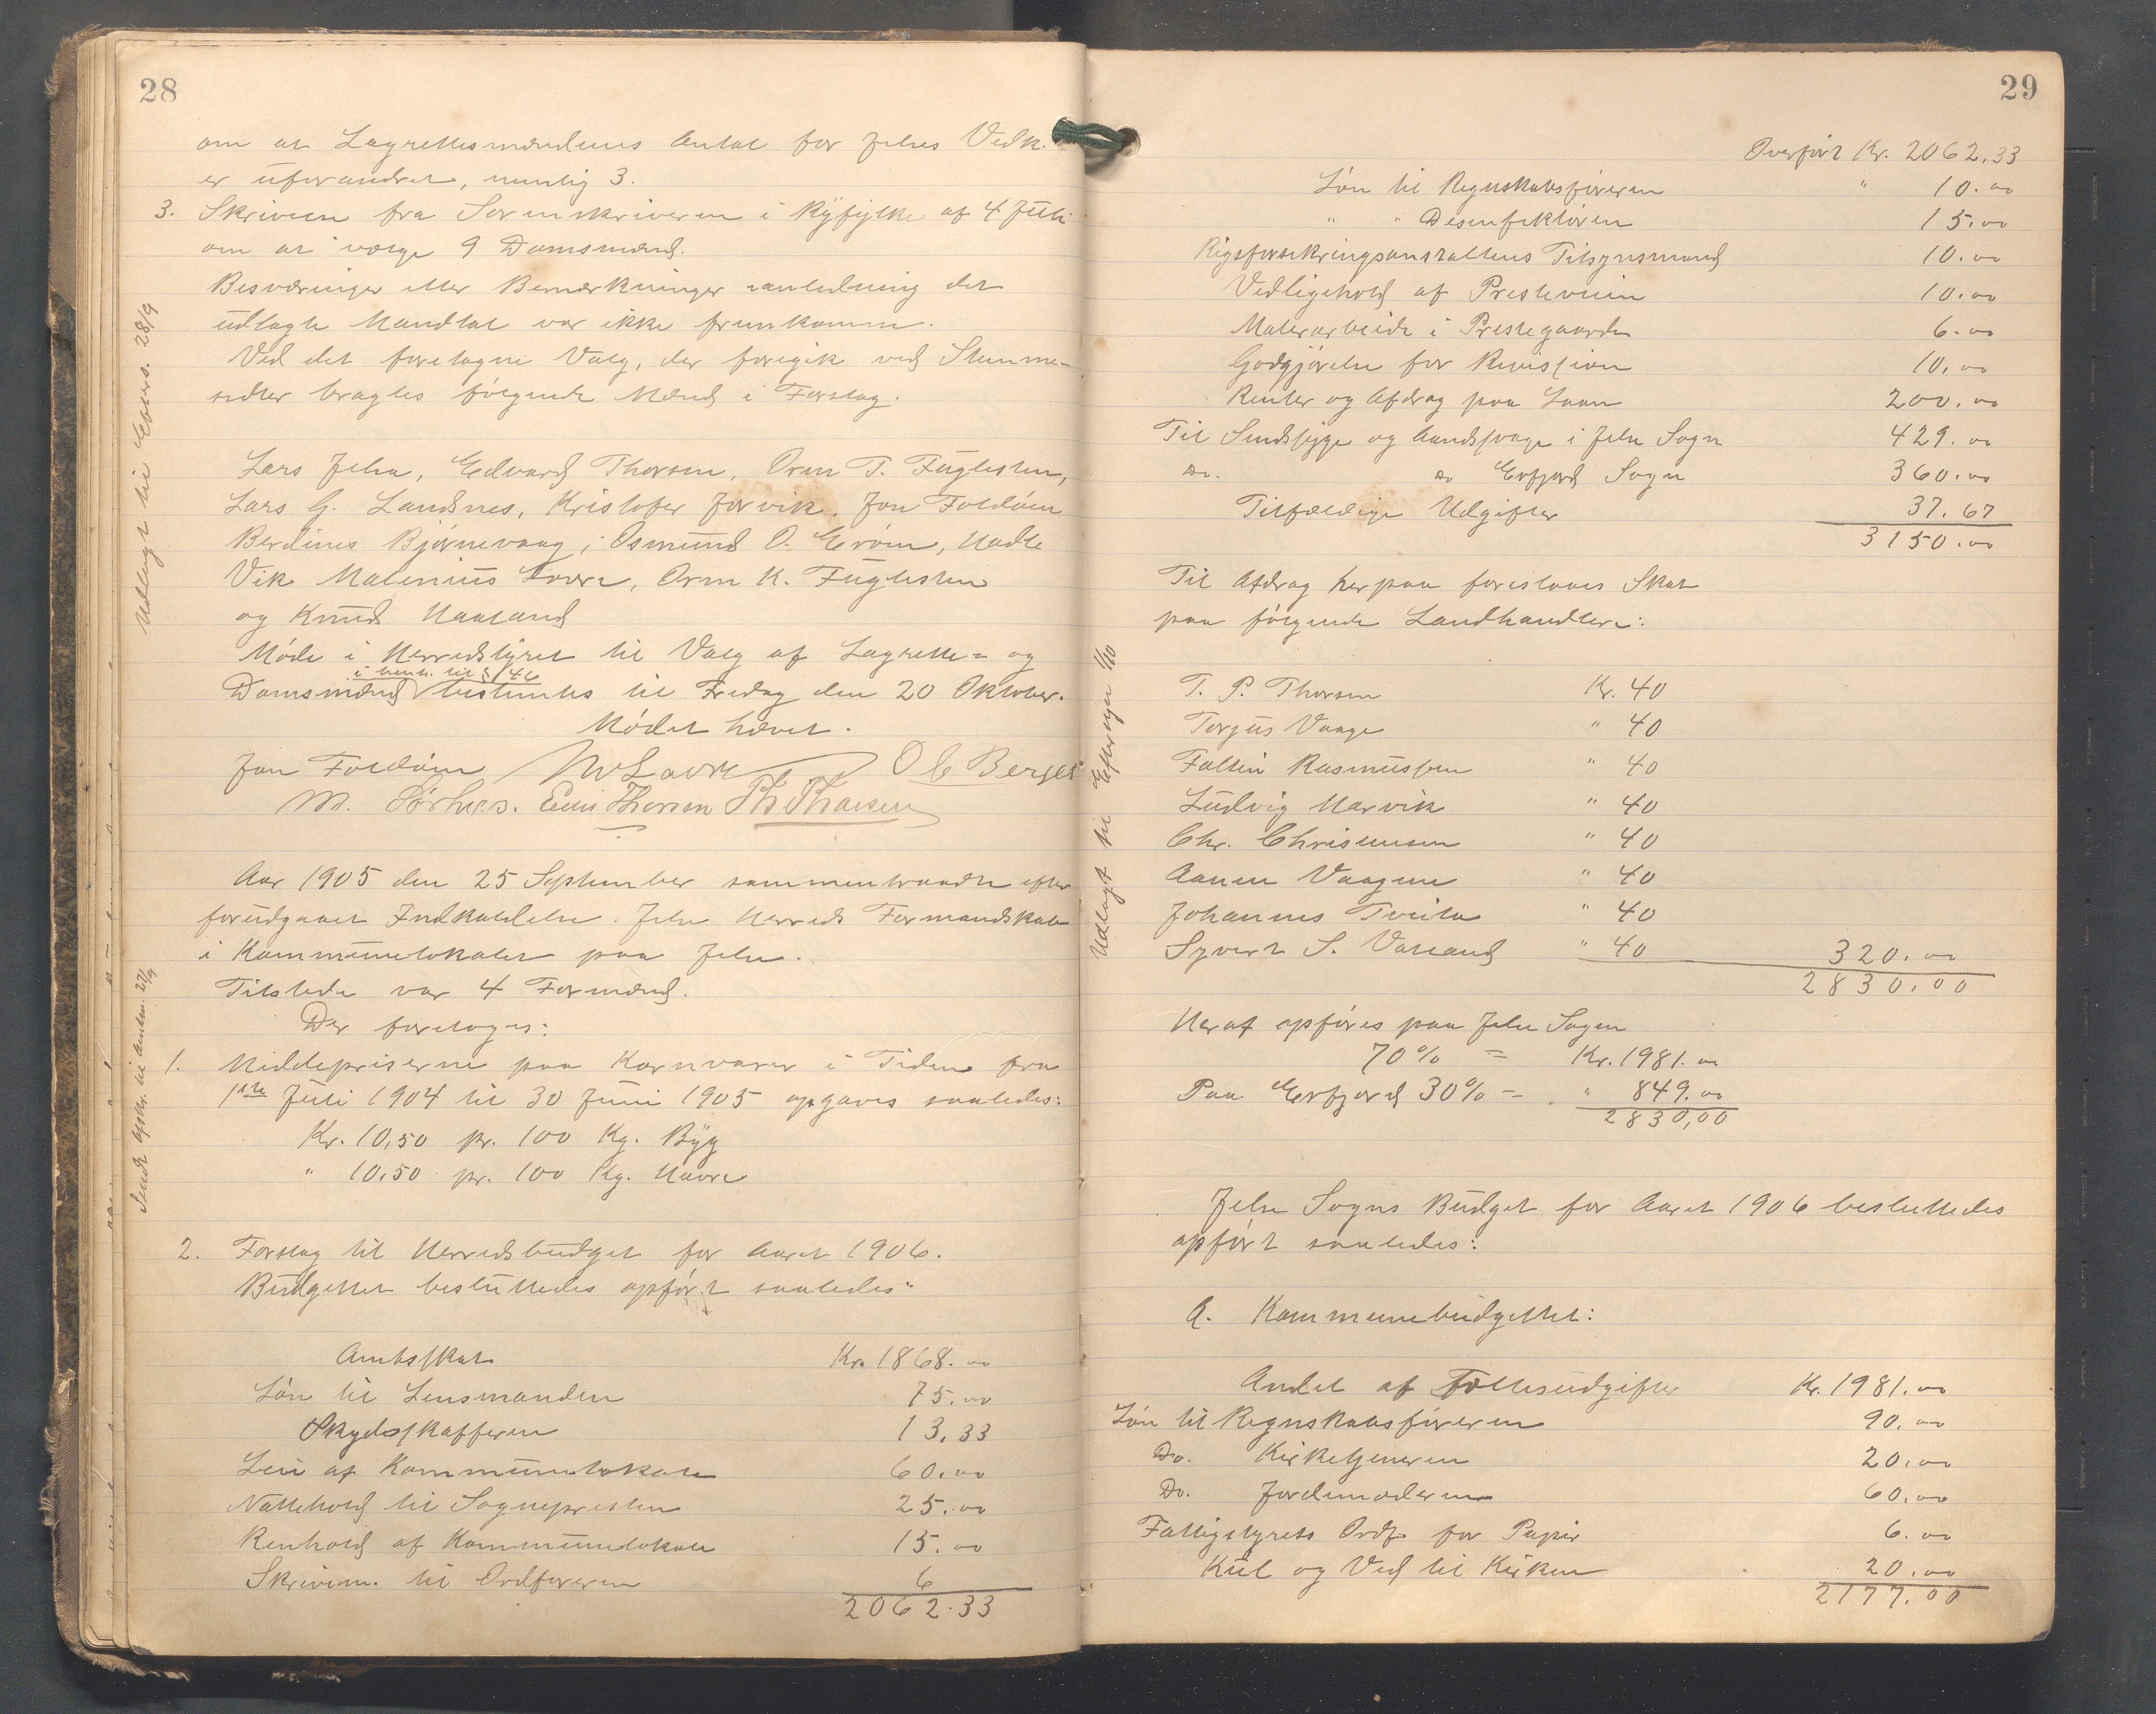 28
om at Lagrettesmændenes Antal for Jelse Vedk.
er uforandret, nemlig 3.
3. Skrivem fra Sorenskriveren i Ryfylke af 4 Juli
om at vælge 9 Domsmænd.
Besværinger eller Bemærkninger ianledning det
udlagte Mandtal var ikke fremkommen.
Ved det foretagne Valg, der foregik ved Stemme-
sedler bragtes følgende Mænd i Forslag.
Lars Jelsa, Edvard Thorsen, Orm T. Fuglesten,
Lars G. Landsnes, Kristofer Jorvik, Jon Foldøen
Berdines Bjørnevaag, Osmund O. Erøen, Nadle
Vik Malenius Lovra, Orm K. Fuglesten
og Knud Haaland
Møde i Herredstyret til Valg af Lagrette- og
i henh. til § 46
Domsmænd bestemtes til Fredag den 20 Oktober.
Mødet hævet.
Jon Foldøen M Lovra O C Berge
M. Sørhus. Edv Thorsen Th Thorsen
Udlagt til Efters. 28/9
Aar 1905 den 25 September sammentraadte efter
forudgaaet Indkaldelse Jelse Herreds Formandskab
i Kommunelokalet paa Jelse.
Tilstede var 4 Formænd.
Der foretoges:
1. Middepriserne paa Kornvarer i Tiden fra
1ste Juli 1904 til 30 Juni 1905 opgaves saaledes:
Kr. 10,50 pr. 100 Kg. Byg
" 10.50 pr. 100 Kg. Havre
Sendt Afskr. til Amtm. 27/9
2. Forslag til Herredsbudget for Aaret 1906.
Budgettet besluttedes opført saaledes:
Amtsskat Kr. 1868.00
Løn til Lensmanden 75.00
Skydsskafferen 13.33
Leie af Kommunelokale 60.00
Nattehold til Sognepresten 25.00
Renhold af Kommunelokale 15.00
Skrivem. til Ordføreren 6
2062.33
29
Overført Kr. 2062,33
Løn til Regnskabsføreren " 10.00
" " Desenfektøren 15.00
Rigsforsikringsanstaltens Tilsynsmand 10.00
Vedligehold af Presteveien 10.00
Malerarbeide i Prestegaarden 6.00
Godgjørelse for Revission 10.00
Renter og Afdrag paa Laan 200.00
Til Sindssyge og Aandssvage i Jelse Sogn 429.00
Do. Do Erfjord Sogn 360.00
Tilfældige Udgifter 37.67
3150.00
Til Afdrag herpaa foreslaaes Skat
paa følgende Landhandlere:
T. P. Thorsen Kr. 40
Torjus Vaage " 40
Faltin Rasmussen " 40
Ludvig Marvik " 40
Chr. Christensen " 40
Aanen Vaagene " 40
Johannes Tveita " 40
Syvert S. Vatland " 40 320.00
2830.00
Udlagt til Eftersyn 1/10
Heraf opføres paa Jelse Sogn
70% = Kr. 1981.00
Paa Erfjord 30% = " 849.00
2830,00
Jelse Sogns Budget for Aaret 1906 besluttedes
opført saaledes:
A. Kommunebudgettet:
Andel af Fællesudgifter Kr. 1981.00
Løn til Regnskabsføreren 90.00
Do. Kirketjeneren 20.00
Do. Jordemoderen 60.00
Fattigstyrets Ordf. for Papir 6.00
Kul og Ved til Kirken 20.00
2177.00